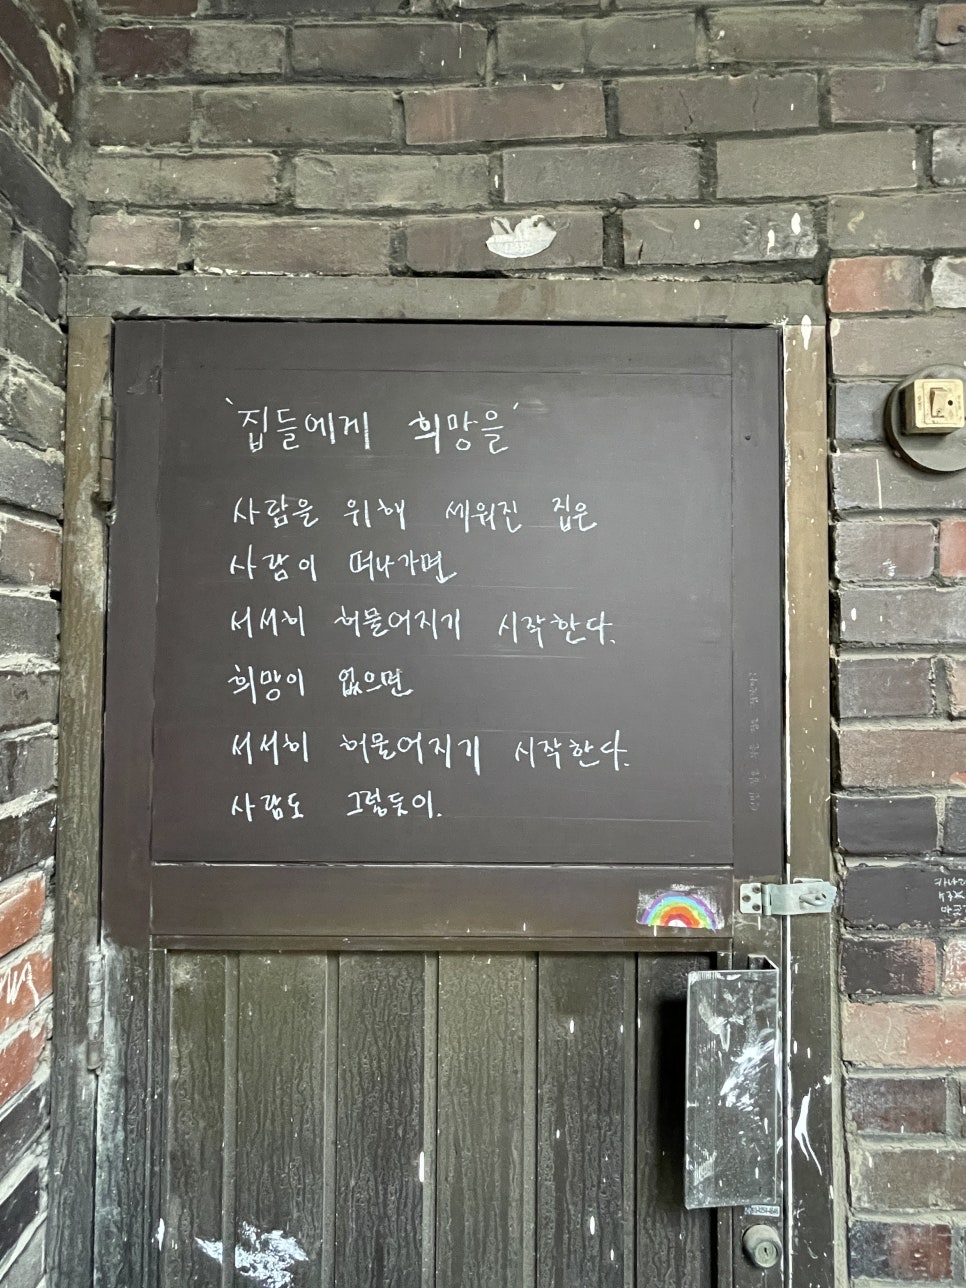 '집들에게 희망을'
사람을 위해 세워진 집은
사람이 떠나가면
서서히 허물어지기 시작한다.
희망이 없으면
서서히 허물어지기 시작한다.
사람도 그렇듯이.